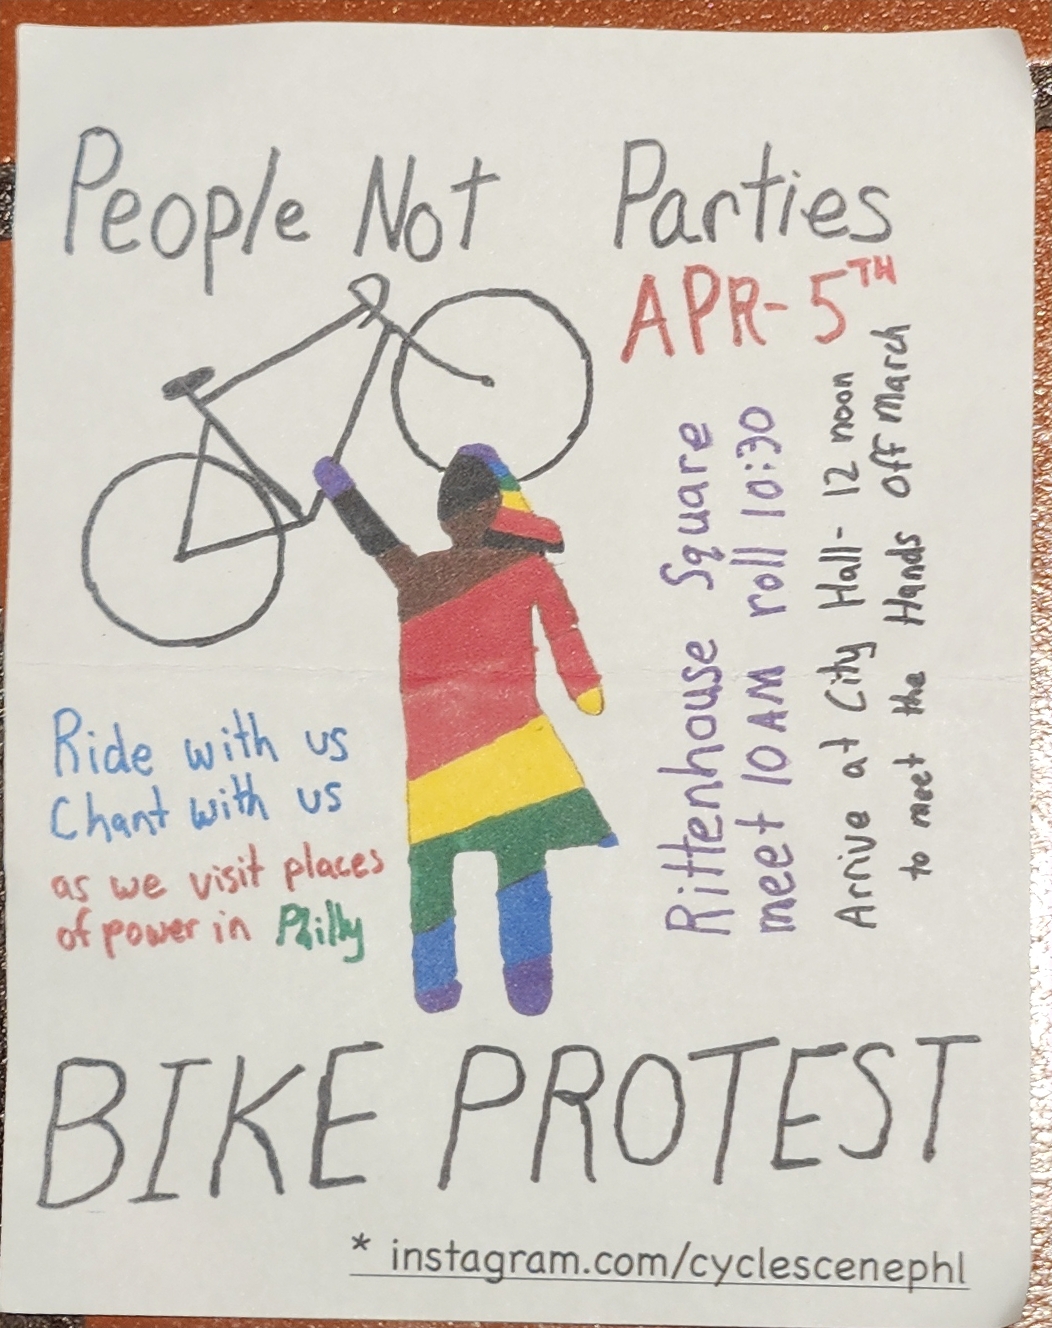 People Not Parties
APR-5TH
Rittenhouse Square
meet 10 AM roll 10:30
Arrive at City Hall- 12 noon
to meet the Hands Off March
Ride with us
Chant with us
as we visit places
of power in Philly
BIKE PROTEST
* instagram.com/cyclescenephl